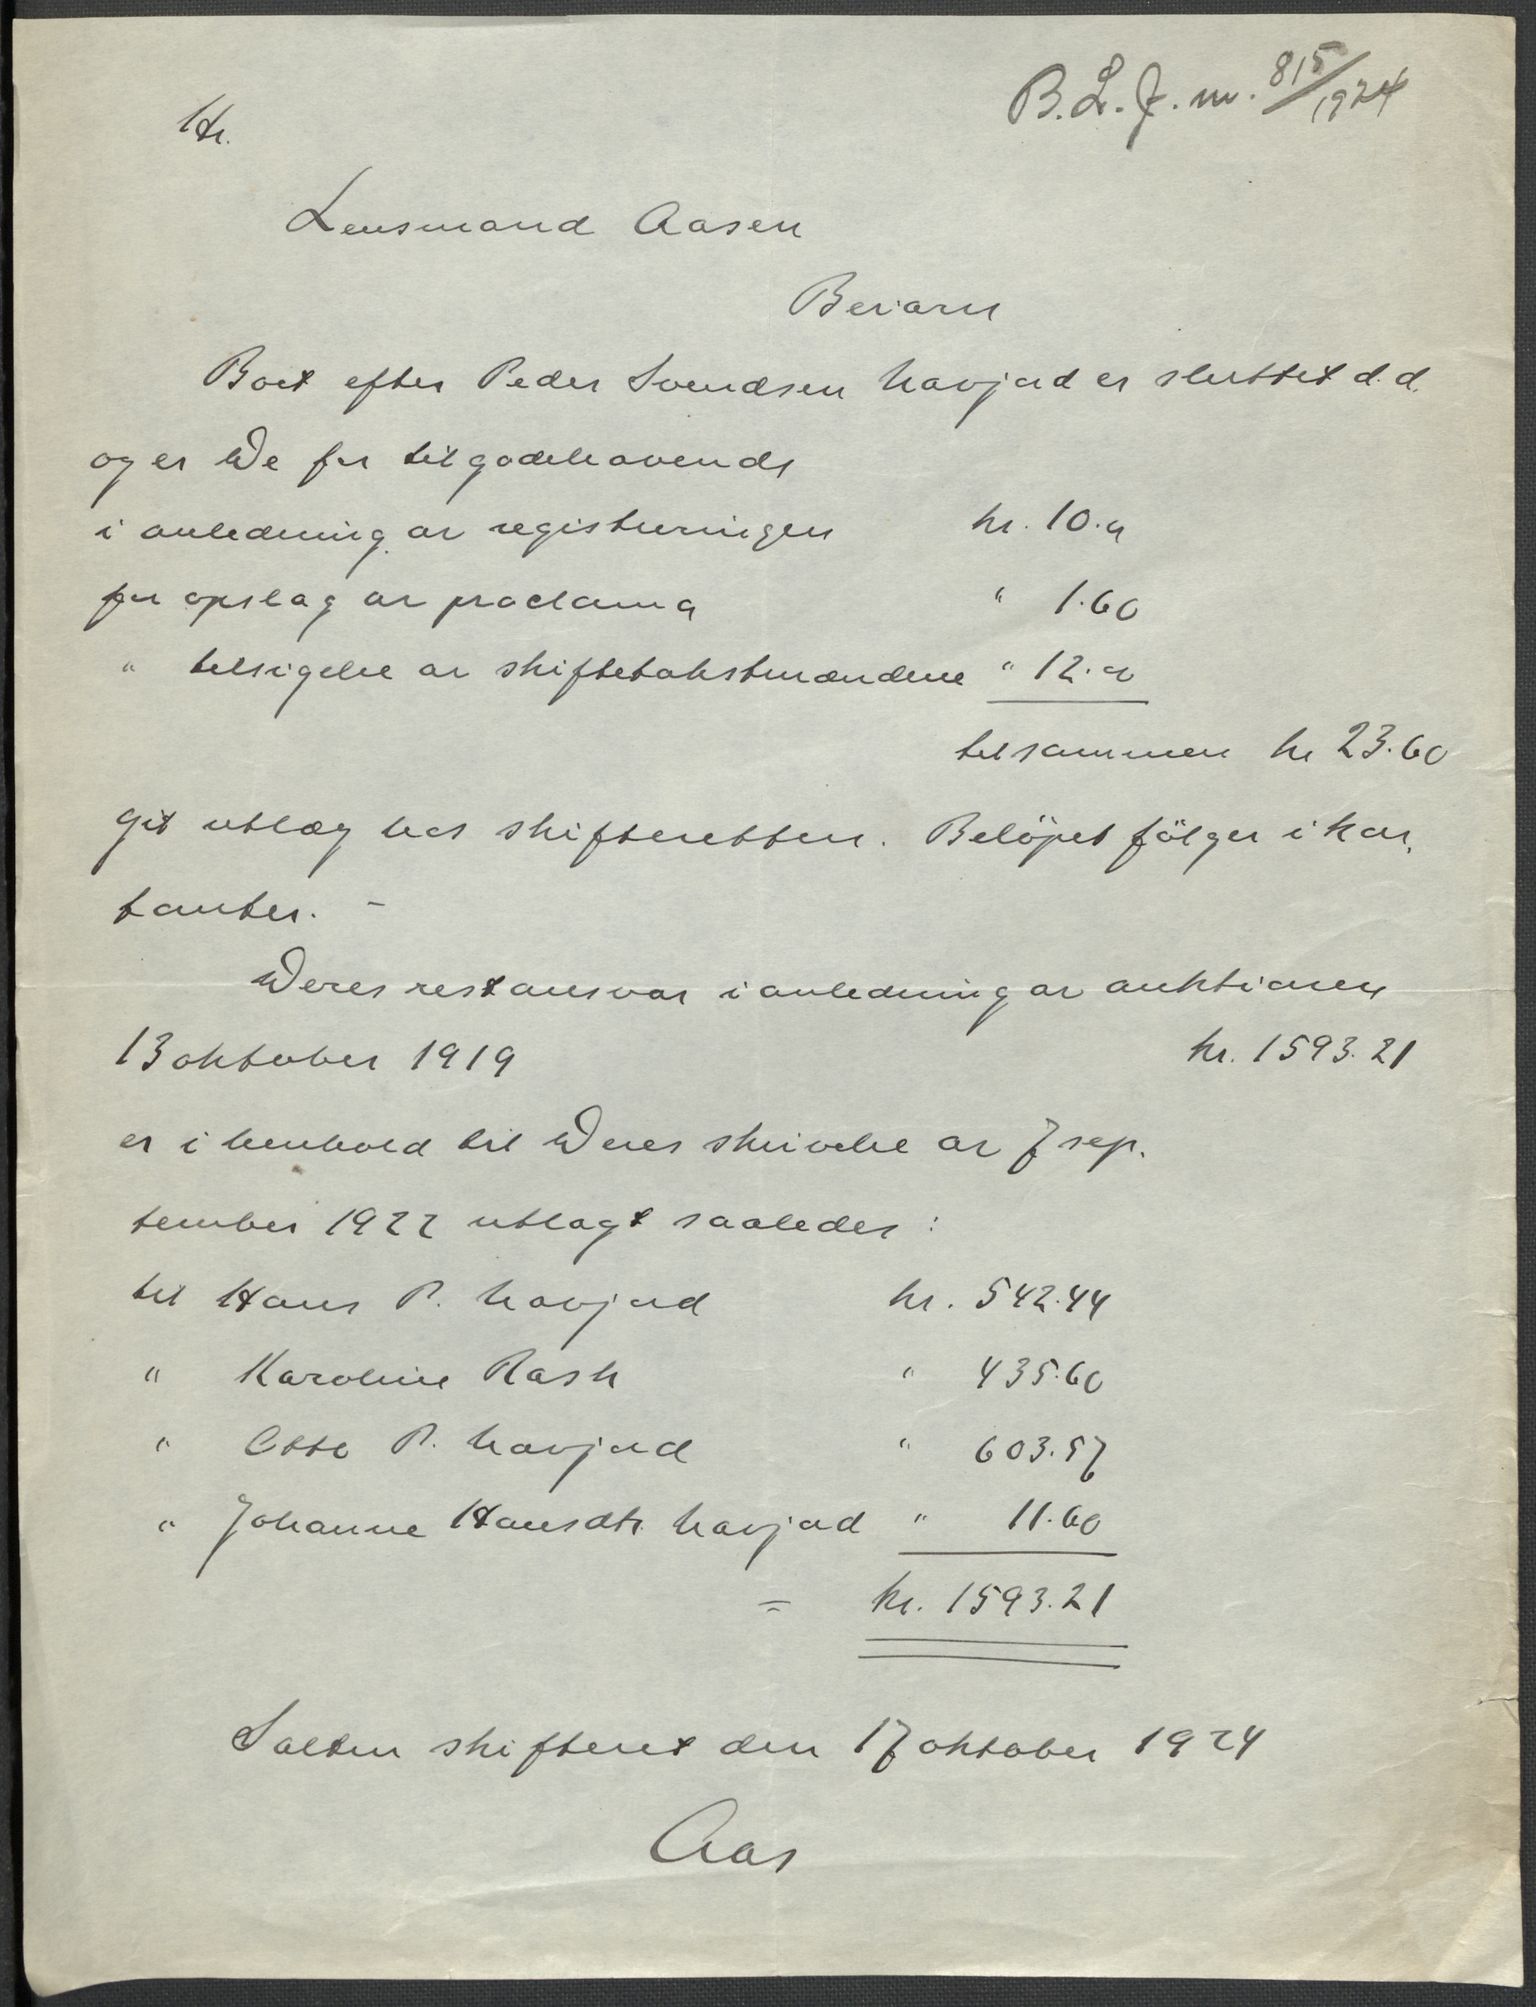 B. L. J. nr. 815/1924
Hr.
Lensmand Aasen
Beiarn
Boet efter Peder Svendsen Navjord er sluttet d. d.
og er De for tilgodehavende
i anledning av registreringen kr. 10.
for opslag av proclama " 1.60
" tilsigelse av skiftetakstmændene " 12.
tilsammen kr 23.60
git utlæg hos skifteretten. Beløpet følger i kon,
tanter. -
Deres restansvar i anledning av auktionen
13 oktober 1919 kr. 1593.21
er i henhold til Deres skrivelse av 7 sep.
tember 1922 utlagt saaledes :
til Hans P. Navjord kr. 542.44
" Karoline Rask " 435.60
" Otto P. Navjord " 603.57
" Johanne Hansdtr. Navjord " 11.60
= kr. 1593.21
Salten skifteret den 17 oktober 1924
Aas